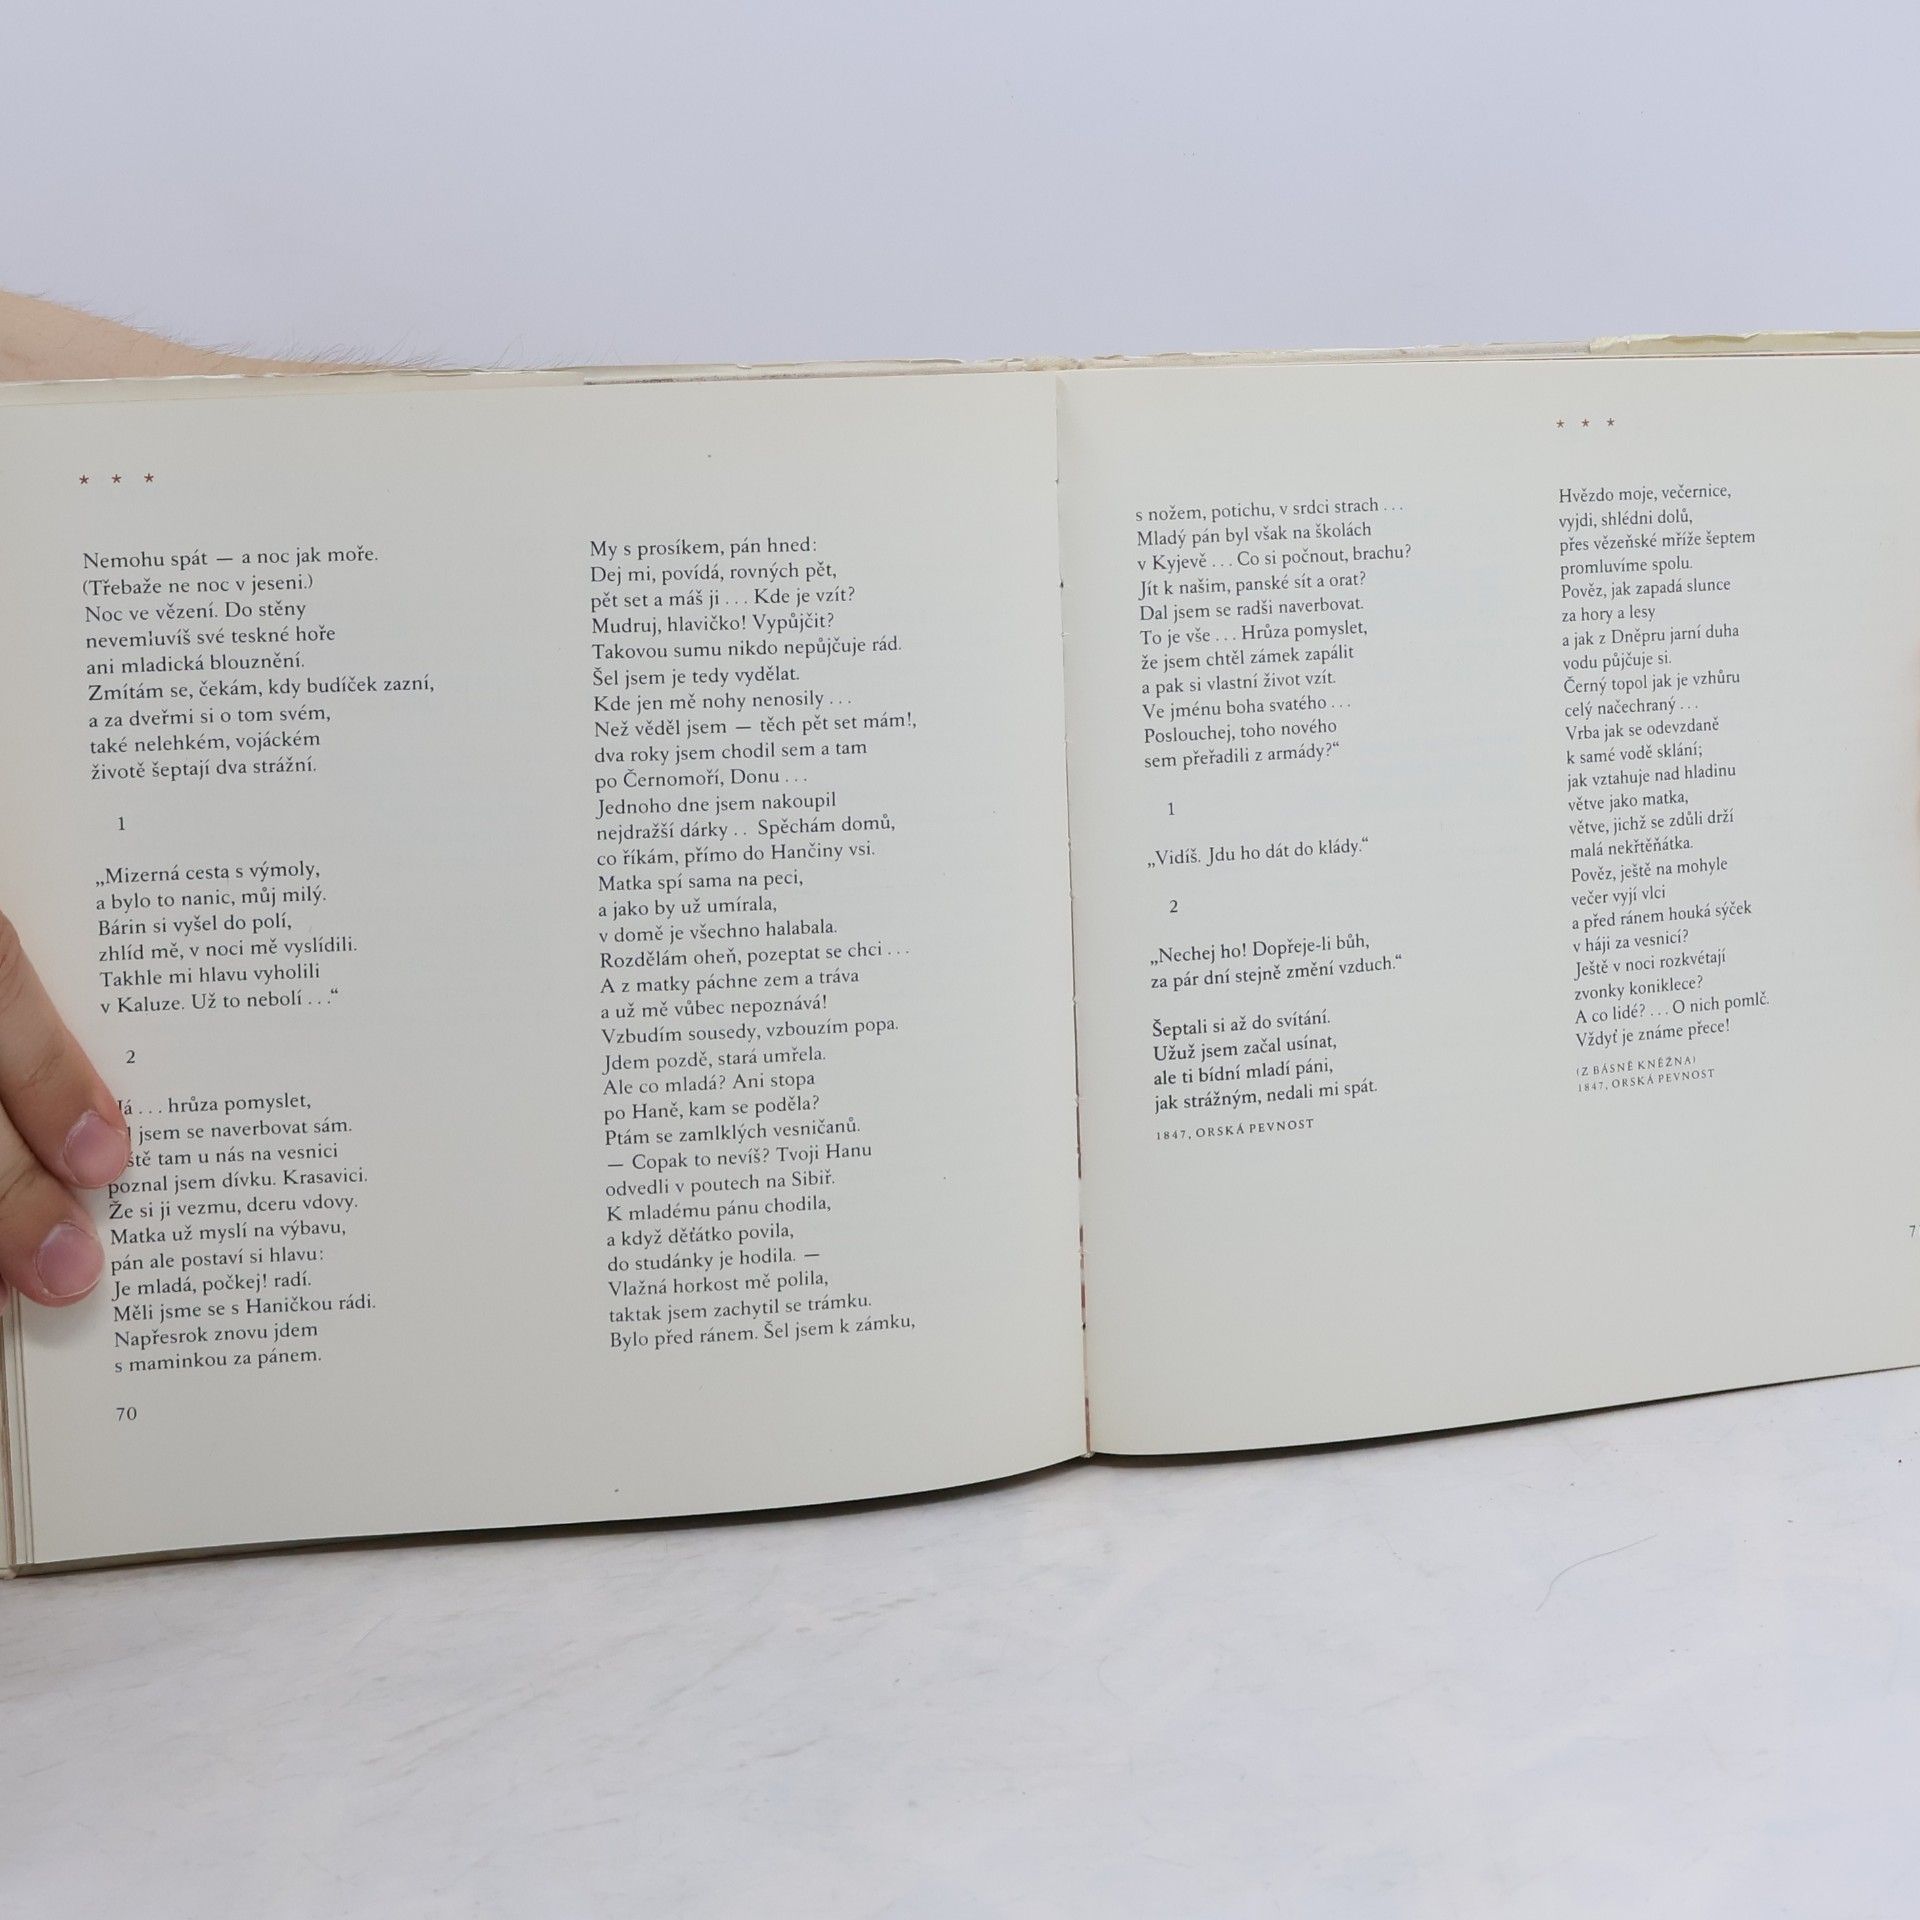 * * *
Nemohu spát — a noc jak moře.
(Třebaže ne noc v jeseni.)
Noc ve vězení. Do stěny
nevemluvíš své teskné hoře
ani mladická blouznění.
Zmítám se, čekám, kdy budíček zazní,
a za dveřmi si o tom svém,
také nelehkém, vojáckém
životě šeptají dva strážní.
1
„Mizerná cesta s výmoly,
a bylo to nanic, můj milý.
Bárin si vyšel do polí,
zhlíd mě, v noci mě vyslídili.
Takhle mi hlavu vyholili
v Kaluze. Už to nebolí . . .“
2
. . . hrůza pomyslet,
jsem se naverbovat sám.
tam u nás na vesnici
poznal jsem dívku. Krasavici.
Že si ji vezmu, dceru vdovy.
Matka už myslí na výbavu,
pán ale postaví si hlavu:
Je mladá, počkej! radí.
Měli jsme se s Haničkou rádi.
Napřesrok znovu jdem
s maminkou za pánem.
70
My s prosíkem, pán hned:
Dej mi, povídá, rovných pět,
pět set a máš ji . . . Kde je vzít?
Mudruj, hlavičko! Vypůjčit?
Takovou sumu nikdo nepůjčuje rád.
Šel jsem je tedy vydělat.
Kde jen mě nohy nenosily . . .
Než věděl jsem — těch pět set mám!,
dva roky jsem chodil sem a tam
po Černomoří, Donu . . .
Jednoho dne jsem nakoupil
nejdražší dárky . . Spěchám domů,
co říkám, přímo do Hančiny vsi.
Matka spí sama na peci,
a jako by už umírala,
v domě je všechno halabala.
Rozdělám oheň, pozeptat se chci . . .
A z matky páchne zem a tráva
a už mě vůbec nepoznává!
Vzbudím sousedy, vzbouzím popa.
Jdem pozdě, stará umřela.
Ale co mladá? Ani stopa
po Haně, kam se poděla?
Ptám se zamlklých vesničanů.
— Copak to nevíš? Tvoji Hanu
odvedli v poutech na Sibiř.
K mladému pánu chodila,
a když děťátko povila,
do studánky je hodila. —
Vlažná horkost mě polila,
taktak jsem zachytil se trámku.
Bylo před ránem. Šel jsem k zámku,
s nožem, potichu, v srdci strach . . .
Mladý pán byl však na školách
v Kyjevě . . . Co si počnout, brachu?
Jít k našim, panské sít a orat?
Dal jsem se radši naverbovat.
To je vše . . . Hrůza pomyslet,
že jsem chtěl zámek zapálit
a pak si vlastní život vzít.
Ve jménu boha svatého . . .
Poslouchej, toho nového
sem přeřadili z armády?“
1
„Vidíš. Jdu ho dát do klády.“
2
„Nechej ho! Dopřeje-li bůh,
za pár dní stejně změní vzduch.“
Šeptali si až do svítání.
Užuž jsem začal usínat,
ale ti bídní mladí páni,
jak strážným, nedali mi spát.
1847, ORSKÁ PEVNOST
* * *
Hvězdo moje, večernice,
vyjdi, shlédni dolů,
přes vězeňské mříže šeptem
promluvíme spolu.
Pověz, jak zapadá slunce
za hory a lesy
a jak z Dněpru jarní duha
vodu půjčuje si.
Černý topol jak je vzhůru
celý načechraný . . .
Vrba jak se odevzdaně
k samé vodě sklání;
jak vztahuje nad hladinu
větve jako matka,
větve, jichž se zdůli drží
malá nekřtěňátka.
Pověz, ještě na mohyle
večer vyjí vlci
a před ránem houká sýček
v háji za vesnicí?
Ještě v noci rozkvétají
zvonky koniklece?
A co lidé? . . . O nich pomlč.
Vždyť je známe přece!
(Z BÁSNĚ KNĚŽNA)
1847, ORSKÁ PEVNOST